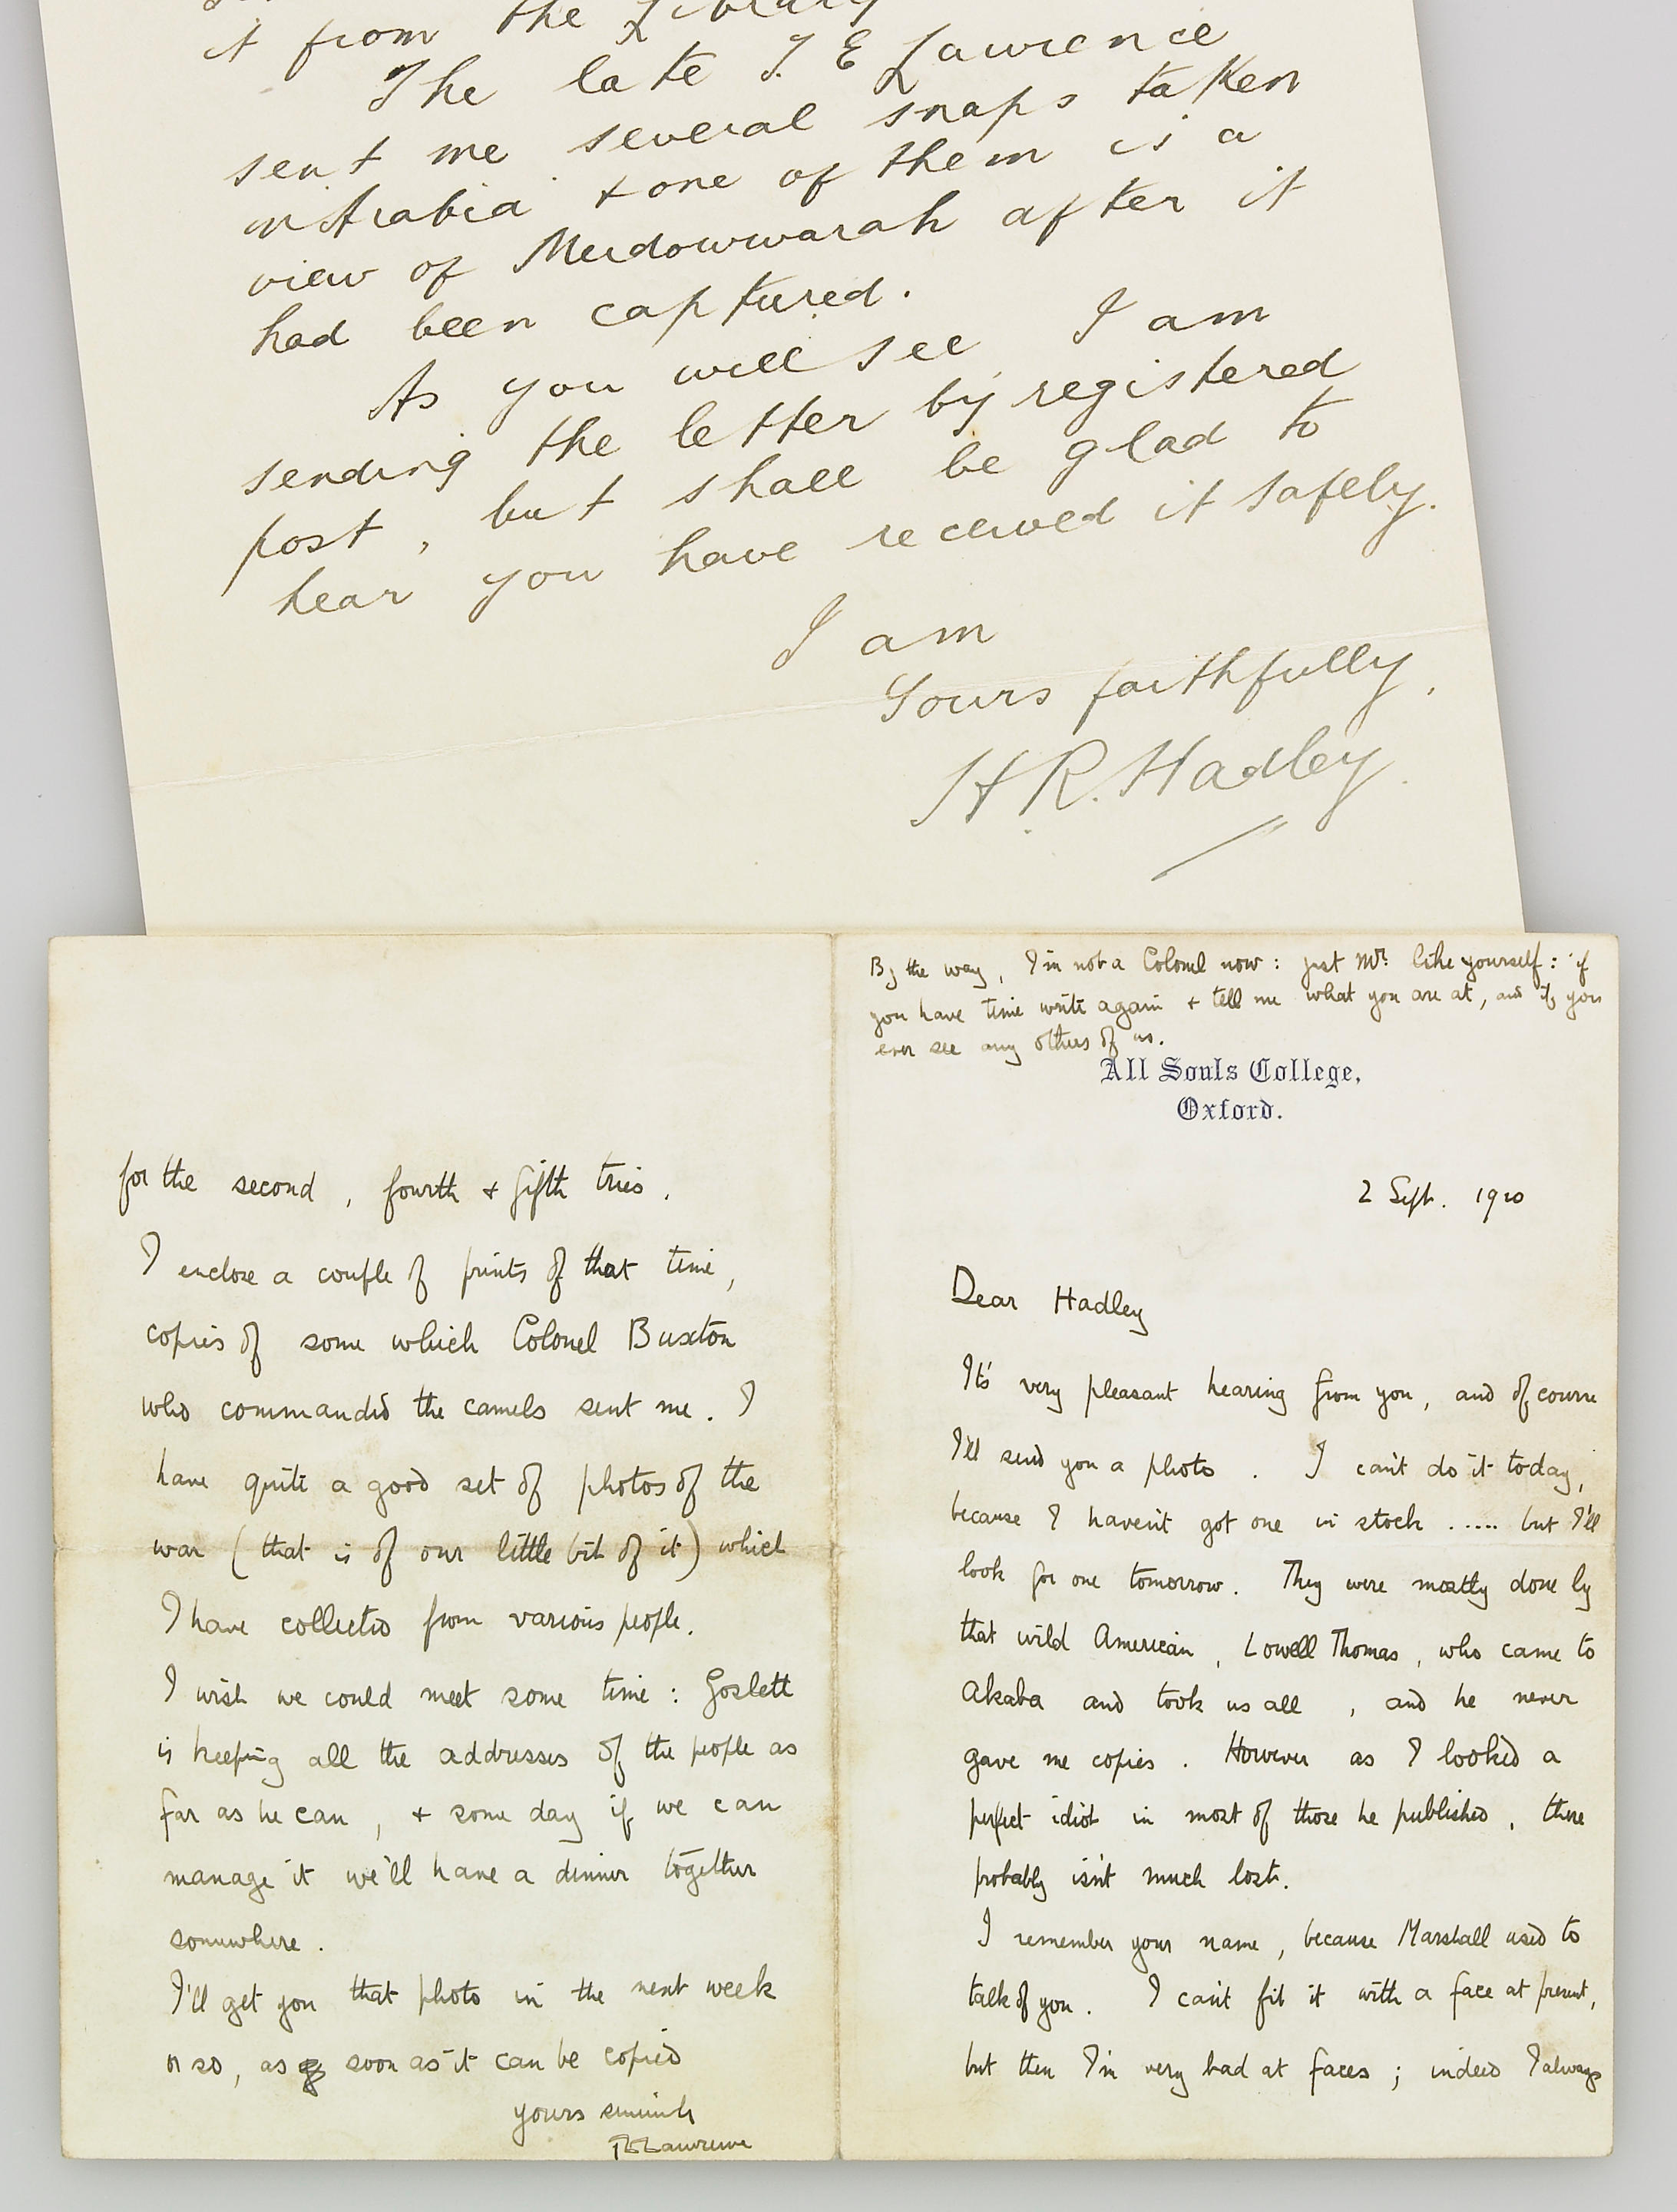 it from the Library
The late T. E Lawrence
sent me several snaps taken
in Arabia & one of them is a
view of Mudowwarah after it
had been captured.
As you will see I am
sending the letter by registered
post, but shall be glad to
hear you have received it safely.
I am
Yours faithfully,
H R. Hadley.
for the second, fourth & fifth tries.
I enclose a couple of prints of that time,
copies of some which Colonel Buxton
who commanded the camels sent me. I
have quite a good set of photos of the
war (that is of our little bit of it) which
I have collected from various people.
I wish we could meet some time: Goslett
is keeping all the addresses of the people as
far as he can, & some day if we can
manage it we'll have a dinner together
somewhere.
I'll get you that photo in the next week
or so, as soon as it can be copied
yours sincerely
TELawrence
By the way, I'm not a Colonel now: just Mr. like yourself: if
you have time write again & tell me what you are at, and if you
ever see any others of us.
All Souls College,
Oxford.
2 Sept. 1920
Dear Hadley
It's very pleasant hearing from you, and of course
I'll send you a photo. I can't do it today,
because I haven't got one in stock ..... but I'll
look for one tomorrow. They were mostly done by
that wild American, Lowell Thomas, who came to
Akaba and took us all, and he never
gave me copies. However as I looked a
perfect idiot in most of those he published, there
probably isn't much lost.
I remember your name, because Marshall used to
talk of you. I can't fit it with a face at present,
but then I'm very bad at faces; indeed I always